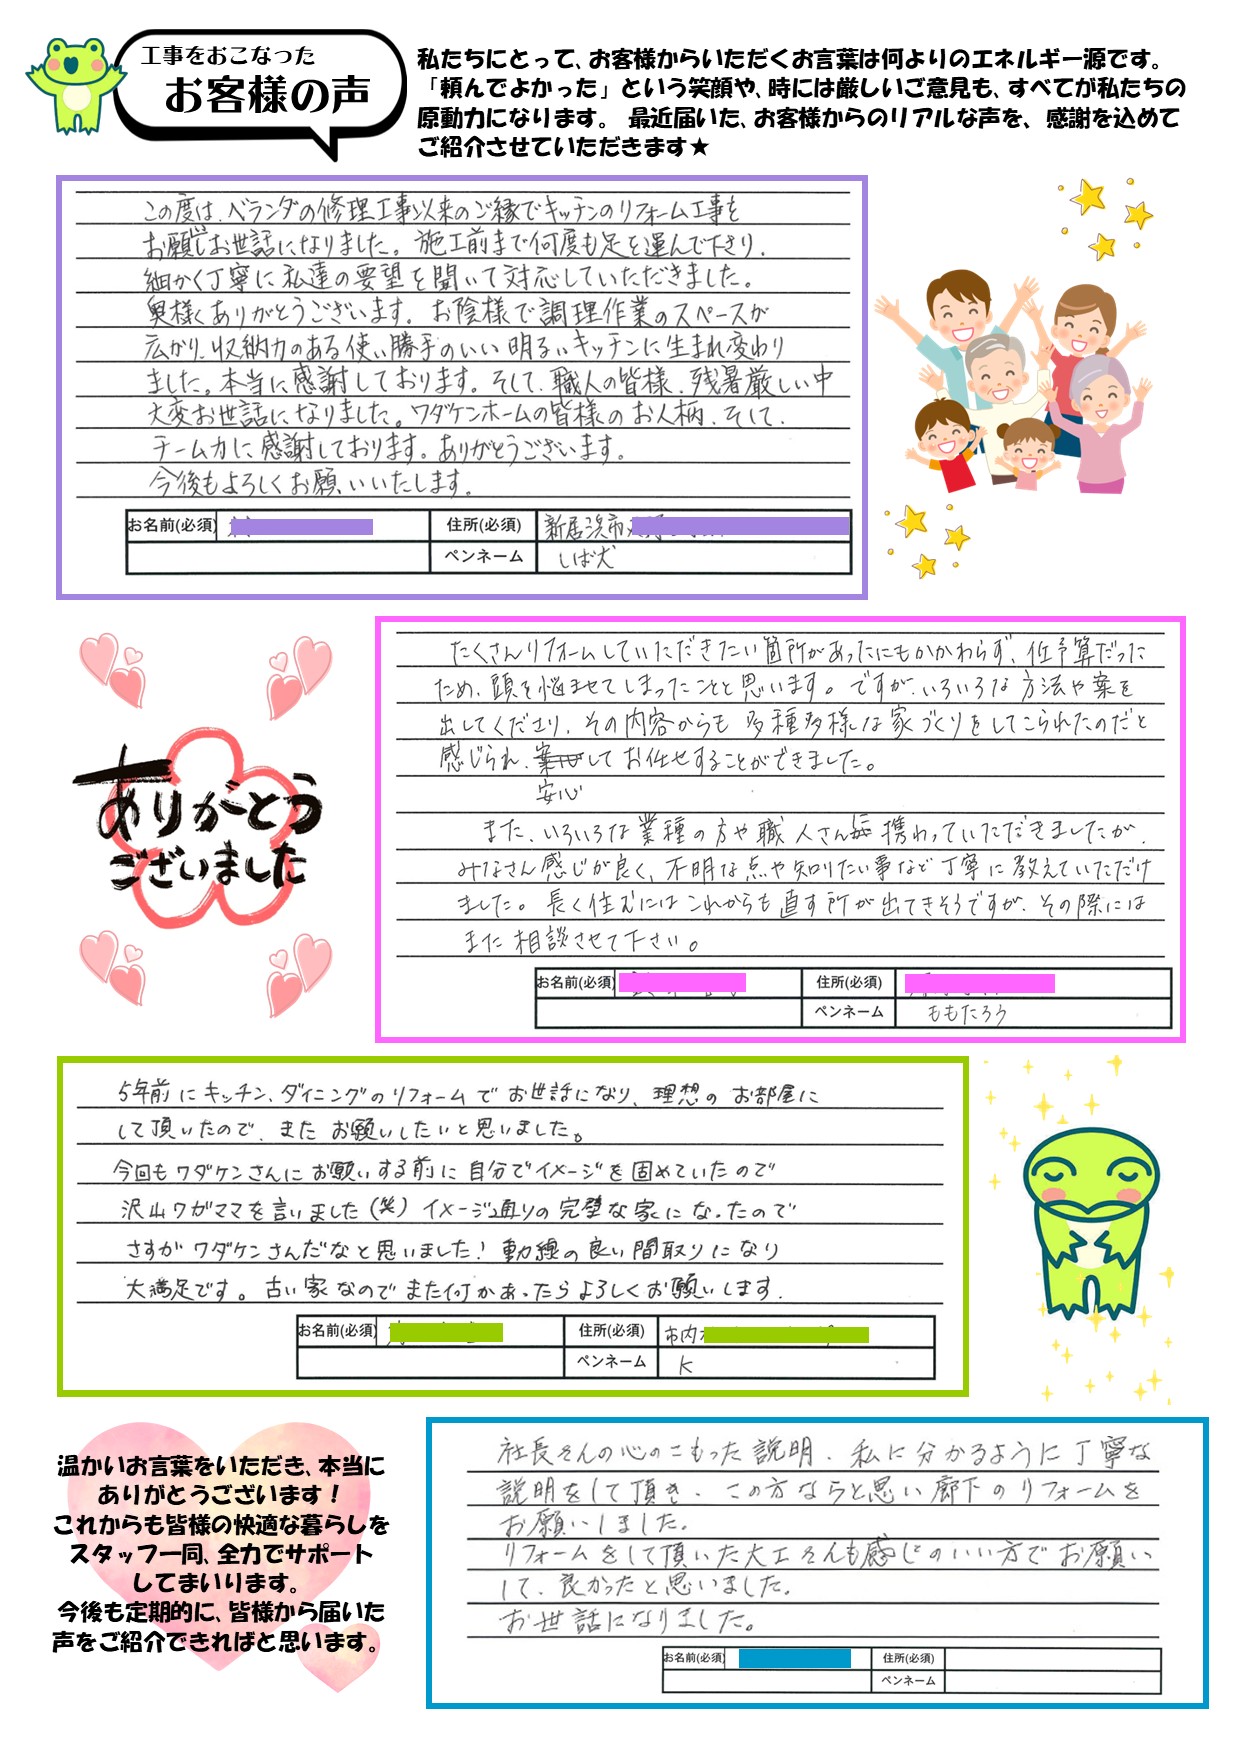 工事をおこなった
お客様の声
私たちにとって、お客様からいただくお言葉は何よりのエネルギー源です。
「頼んでよかった」という笑顔や、時には厳しいご意見も、すべてが私たちの
原動力になります。 最近届いた、お客様からのリアルな声を、感謝を込めて
ご紹介させていただきます★
この度は、ベランダの修理工事以来のご縁でキッチンのリフォーム工事を
お願いしお世話になりました。施工前まで何度も足を運んで下さり、
細かく丁寧に私達の要望を聞いて対応していただきました。
奥様くありがとうございます。お陰様で調理作業のスペースが
広がり、収納力のある使い勝手のいい明るいキッチンに生まれ変わり
ました。本当に感謝しております。そして、職人の皆様、残暑厳しい中
大変お世話になりました。ワダケンホームの皆様のお人柄、そして、
チーム力に感謝しております。ありがとうございます。
今後もよろしくお願いいたします。
お名前(必須) 住所(必須) 新居浜市
ペンネーム しば犬
たくさんリフォームしていただきたい箇所があったにもかかわらず、低予算だった
ため、頭を悩ませてしまったことと思います。ですが、いろいろな方法や案を
出してくださり、その内容からも多種多様な家づくりをしてこられたのだと
感じられ、してお任せすることができました。
安心
また、いろいろな業種の方や職人さんに携わっていただきましたが、
みなさん感じが良く、不明な点や知りたい事など丁寧に教えていただけ
ました。長く住むにはこれからも直す所が出てきそうですが、その際には
また相談させて下さい。
お名前(必須) 住所(必須)
ペンネーム ももたろう
ありがとう
ございました
5年前にキッチン、ダイニングのリフォームでお世話になり、理想のお部屋に
して頂いたので、またお願いしたいと思いました。
今回もワダケンさんにお願いする前に自分でイメージを固めていたので
沢山ワガママを言いました(笑)イメージ通りの完璧な家になったので
さすがワダケンさんだなと思いました!動線の良い間取りになり
大満足です。古い家なのでまた何かあったらよろしくお願いします。
お名前(必須) 住所(必須) 市内
ペンネーム K
温かいお言葉をいただき、本当に
ありがとうございます!
これからも皆様の快適な暮らしを
スタッフ一同、全力でサポート
してまいります。
今後も定期的に、皆様から届いた
声をご紹介できればと思います。
社長さんの心のこもった説明、私に分かるように丁寧な
説明をして頂き、この方ならと思い廊下のリフォームを
お願いしました。
リフォームをして頂いた大工さんも感じのいい方でお願い
して、良かったと思いました。
お世話になりました。
お名前(必須) 住所(必須)
ペンネーム